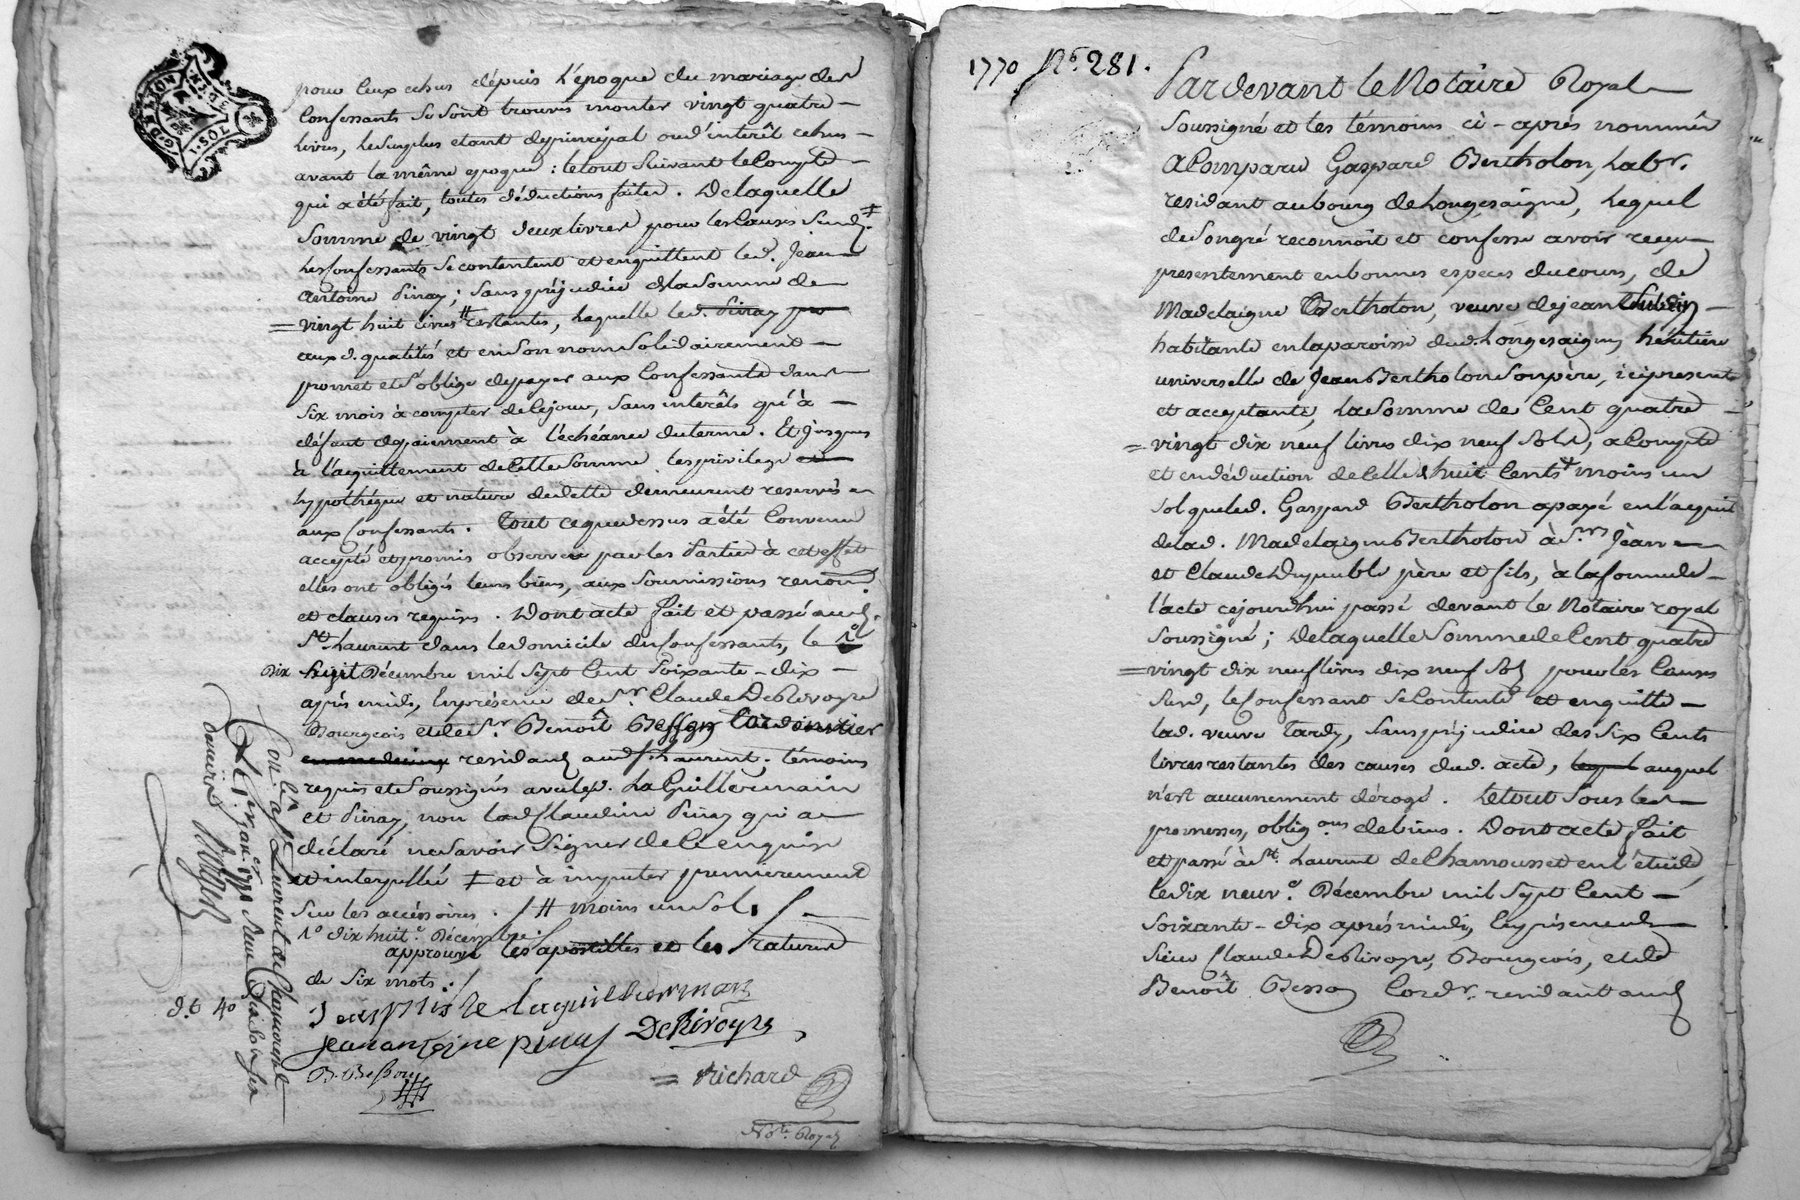 G. DE LYON
1. SOL
pour ceux echus depuis l'epoque du mariage des
Confessants se sont trouvés monter vingt quatre
livres, le surplus etant de principal ou d'interêt echus
avant la même epoque : le tout suivant le Compte
qui a été fait, toutes déductions faites. De laquelle
Somme de vingt deux livres pour les Causes Susd. ‡
les Confessants se contentent et enquittent led. Jean
Antoine Pinay ; sans préjudice de la Somme de
= vingt huit livres # restantes, laquelle led. Pinay
aux d. qualités et en son nom solidairement
promet et s'oblige de payer aux Confessants dans
six mois à compter de ce jour, sans interêts qu'à
défaut de paiement à l'echéance du terme. Et jusques
à l'acquittement de cette Somme les privilege
hypothéque et nature de dette demeurent reservés
aux Confessants. Tout ce que dessus a été Convenu
accepté et promis observer par les Parties à cet effet
elles ont obligés leurs biens, aux soumissions renon.
et clauses requises. Dont acte fait et passé aud.
St. Laurent dans le domicile des Confessants, le 1o
Dix huit Décembre mil Sept Cent Soixante-dix
après midi, En présence de Sr. Claude DeRivoyre
Bourgeois et de Sr. Benoît Besson Cordonnier
residants aud. St. Laurent. témoins
requis et Soussignés avec les d. Laguillermain
et Pinay, non lad. Claudine Pinay qui a
déclaré ne savoir Signer de ce enquise
et interpellée ‡ et à imputer premierement
sur les accéssoires. / # moins un sol. /
1o dix huit.e Décembre.
approuvé les apostilles et les ratures
de six mots. /
Jean antoine pinay DeRivoyre
B. Besson
= Richard
Not.re Royal
d. 6 40
Con.lé à St Laurent de Chamousset
Le 1er jan.er 1771 Reçu
1770 No. 281.
Pardevant le Notaire Royal
Soussigné et les témoins ci-aprés nommés
a Comparu Gaspard Bertholon, Labr.
residant au bourg de Longesaigne, Lequel
de son gré reconnoit et confesse avoir reçu
presentement en bonnes especes du cours, de
Madelaigne Bertholon, veuve de jean
habitante en la paroisse dud. Longesaigne, héritiere
universelle de Jean Bertholon son père, ici presente
et acceptante, la Somme de Cent quatre
= vingt dix neuf livres dix neuf Sols, a Compte
et en déduction de Celle de huit Cents ‡ moins un
sol que led. Gaspard Bertholon a payé en l'acquit
de lad. Madelaigne Bertholon à Srs Jean
et Claude Dupuble père et fils, à la forme de
l'acte cejourd'hui passé devant le Notaire royal
Soussigné ; de laquelle Somme de Cent quatre
= vingt dix neuf livres dix neuf Sols pour les Causes
Susd. le Confessant se Contente et enquitte
lad. veuve Tardy, sans préjudice des Six Cents
livres restantes des causes dud. acte, lequel auquel
n'est aucunement dérogé. Le tout Sous les
promesses, oblig.ons de biens. Dont acte fait
et passé à St. Laurent de Chamousset en l'étude,
le dix neuv.e Décembre mil Sept Cent
Soixante-dix aprés midi, En présence de
Sieur Claude DeRivoyre, Bourgeois, et de
Benoît Besson Cordr. residants aud.